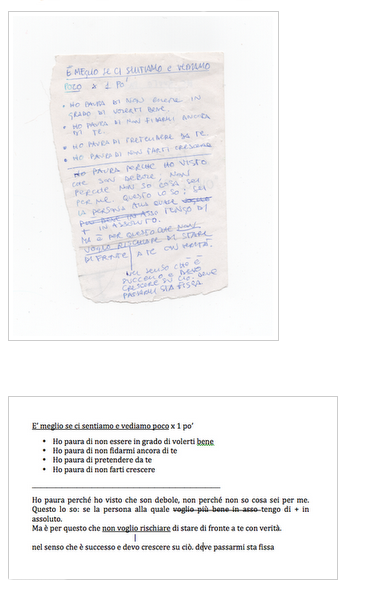 E MEGLIO SE CI SENTIAMO E VEDIAMO
POCO x 1 PO'
• HO PAURA DI NON ESSERE IN
GRADO DI VOLERTI BENE
• HO PAURA DI NON FIDARMI ANCORA
DI TE.
• HO PAURA DI PRETENDERE DA TE
• HO PAURA DI NON FARTI CRESCERE
HO PAURA PERCHÉ HO VISTO
CHE SON DEBOLE, NON
PERCHÉ NON SO COSA SEI
PER ME. QUESTO LO SO: SEI
LA PERSONA ALLA QUALE VOGLIO
PIÙ BENE IN ASSO TENGO DI
+ IN ASSOLUTO.
MA È PER QUESTO CHE NON
VOGLIO RISCHIARE DI STARE
DI FRONTE A TE CON VERITÀ.
NEL SENSO CHE È
SUCCESSO E DEVO
CRESCERE SU CIÒ. DEVE
PASSARMI STA FISSA
E' meglio se ci sentiamo e vediamo poco x 1 po'
• Ho paura di non essere in grado di volerti bene
• Ho paura di non fidarmi ancora di te
• Ho paura di pretendere da te
• Ho paura di non farti crescere
Ho paura perché ho visto che son debole, non perché non so cosa sei per me.
Questo lo so: se la persona alla quale voglio più bene in asso tengo di + in
assoluto.
Ma è per questo che non voglio rischiare di stare di fronte a te con verità.
nel senso che è successo e devo crescere su ciò. deve passarmi sta fissa